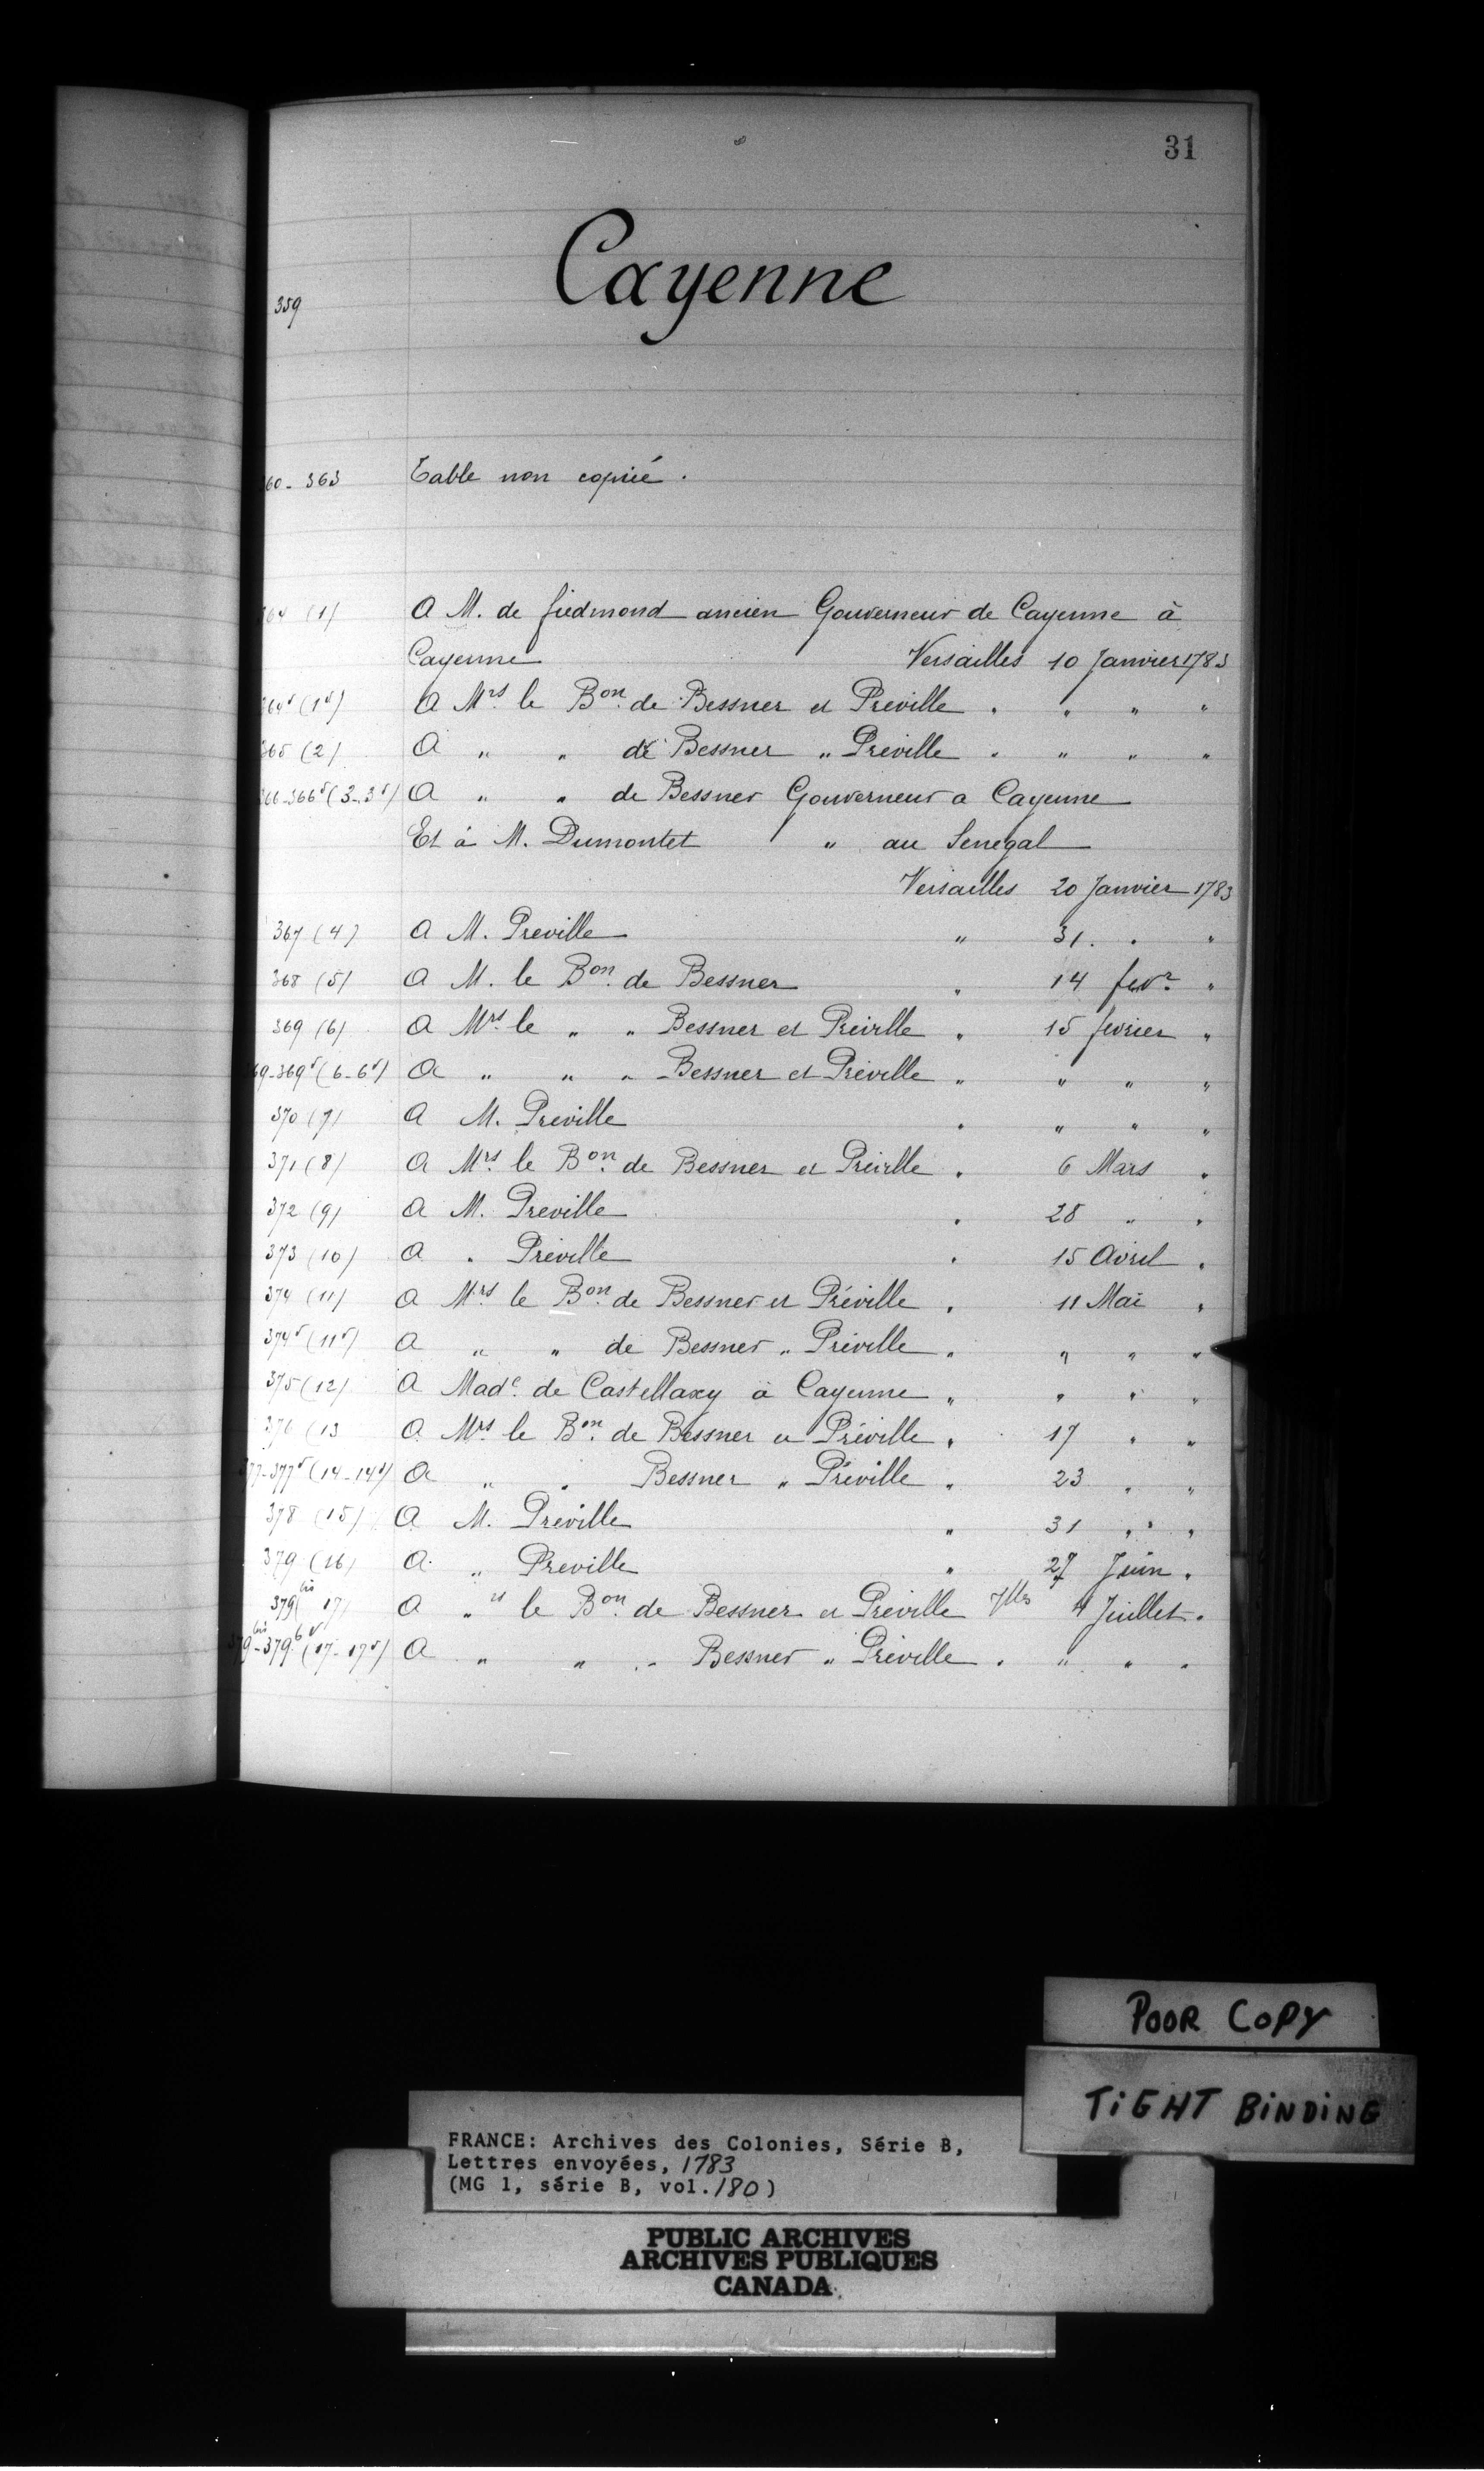 31
Cayenne
359
60 - 363 Table non copiée.
364 (1) A M. de fiedmond ancien Gouverneur de Cayenne à
Cayenne Versailles 10 Janvier 1783
364v (1v) A Mrs le Bon. de Bessner et Preville " " " "
365 (2) A " " de Bessner " Préville " " " "
366-366v (3-3v) A " " de Bessner Gouverneur a Cayenne
Et à M. Dumontet " au Senegal
Versailles 20 Janvier 1783
367 (4) A M. Preville " 31. " "
368 (5) A M. le Bon. de Bessner " 14 fevr. "
369 (6) A Mrs le " " Bessner et Préville " 15 fevrier "
69-369v (6-6v) A " " " Bessner et Préville " " " "
370 (7) A M. Preville " " " "
371 (8) A Mrs. le Bon. de Bessner et Préville " 6 Mars "
372 (9) A M. Preville " 28 " "
373 (10) A " Préville " 15 Avril "
374 (11) A Mrs. le Bon. de Bessner et Préville " 11 Mai "
374v (11v) A " " de Bessner " Préville " " " "
375 (12) A Made. de Castellaxy à Cayenne " " " "
376 (13 A Mrs le Bon. de Bessner et Préville " 17 " "
77-377v (14-14v) A " " Bessner " Préville " 23 " "
378 (15) A M. Préville " 31 " "
379 (16) A " Preville " 27 Juin "
379bis (17) A " rs le Bon. de Bessner et Préville Vlles 4 Juillet "
379bis-379b v (17-17v) A " " " Bessner " Préville " " " "
POOR COPY
TIGHT BINDING
FRANCE: Archives des Colonies, Série B,
Lettres envoyées, 1783
(MG 1, série B, vol. 180)
PUBLIC ARCHIVES
ARCHIVES PUBLIQUES
CANADA